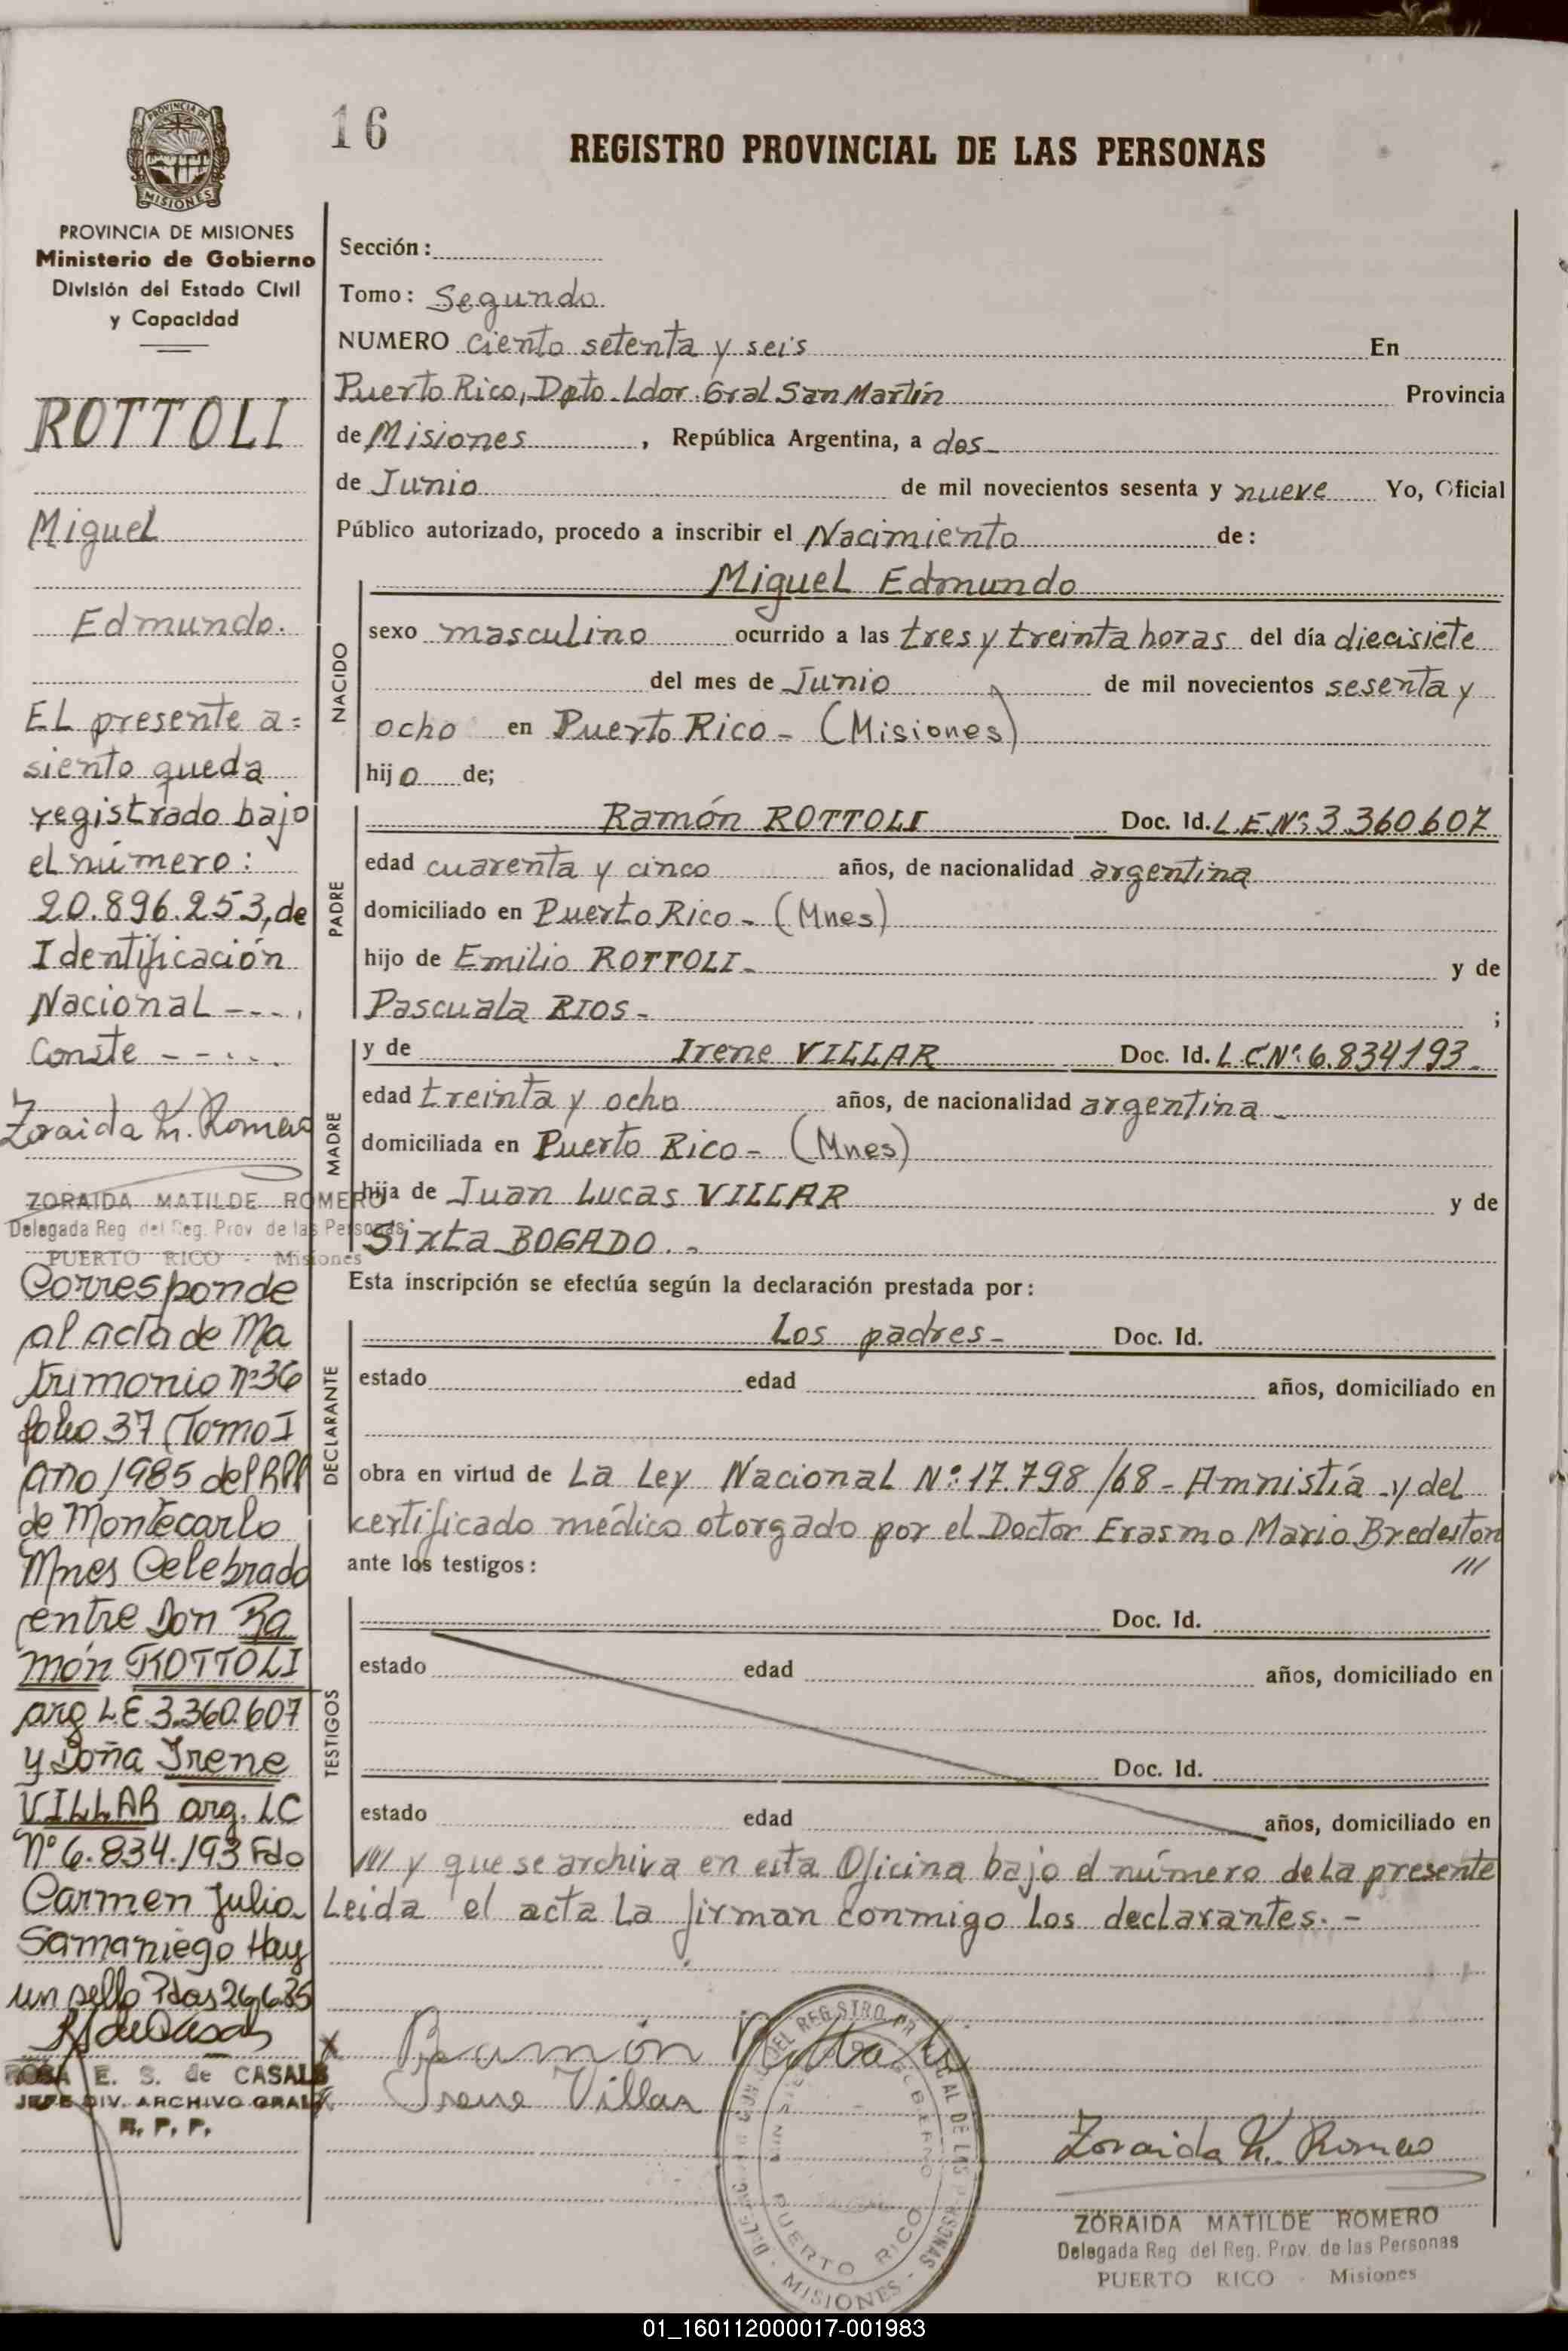 16
REGISTRO PROVINCIAL DE LAS PERSONAS
PROVINCIA DE
MISIONES
PROVINCIA DE MISIONES
Ministerio de Gobierno
División del Estado Civil
y Capacidad
ROTTOLI
Miguel
Edmundo.
EL presente a=
siento queda
registrado bajo
el número:
20.896.253, de
Identificación
Nacional ----,
Conste -----
Zoraida M. Romero
ZORAIDA MATILDE ROMERO
Delegada Reg del Reg. Prov de las Personas
PUERTO RICO - Misiones
Corresponde
al acta de Ma
trimonio Nº 36
folio 37 (Tomo I
año 1985 del RPP
de Montecarlo
Mnes Celebrado
entre Don Ra
món ROTTOLI
arg L.E 3.360.607
y Doña Irene
VILLAR arg. LC
Nº 6.834.193 Fdo
Carmen Julia
Samaniego Hay
un sello Pdas 26.6.85
ROSA E. S. de CASALS
JEFE DIV. ARCHIVO GRAL
R. P. P.
Sección:
Tomo: Segundo
NUMERO ciento setenta y seis En
Puerto Rico, Dpto. Ldor. Gral San Martín Provincia
de Misiones, República Argentina, a dos-
de Junio de mil novecientos sesenta y nueve Yo, Oficial
Público autorizado, procedo a inscribir el Nacimiento de:
NACIDO
Miguel Edmundo
sexo masculino ocurrido a las tres y treinta horas del día diecisiete
del mes de Junio de mil novecientos sesenta y
ocho en Puerto Rico - (Misiones)
hijo de;
PADRE
Ramón ROTTOLI Doc. Id. L.E Nº: 3.360607
edad cuarenta y cinco años, de nacionalidad argentina
domiciliado en Puerto Rico - (Mnes)
hijo de Emilio ROTTOLI - y de
Pascuala RIOS - ;
MADRE
y de Irene VILLAR Doc. Id. L.C.Nº: 6.834193 -
edad treinta y ocho años, de nacionalidad argentina -
domiciliada en Puerto Rico - (Mnes)
hija de Juan Lucas VILLAR y de
Sixta BOGADO. -
Esta inscripción se efectúa según la declaración prestada por:
DECLARANTE
Los padres - Doc. Id.
estado edad años, domiciliado en
obra en virtud de La Ley Nacional Nº: 17.798/68 - Amnistía - y del
certificado médico otorgado por el Doctor Erasmo Mario Bredeston
///
ante los testigos:
TESTIGOS
Doc. Id.
estado edad años, domiciliado en
Doc. Id.
estado edad años, domiciliado en
//// y que se archiva en esta Oficina bajo el número de La presente
Leida el acta La firman conmigo Los declarantes. -
x Ramón Rottoli
x Irene Villar
PUERTO RICO
MISIONES
Zoraida M. Romero
ZORAIDA MATILDE ROMERO
Delegada Reg del Reg. Prov. de las Personas
PUERTO RICO - Misiones
01_160112000017-001983